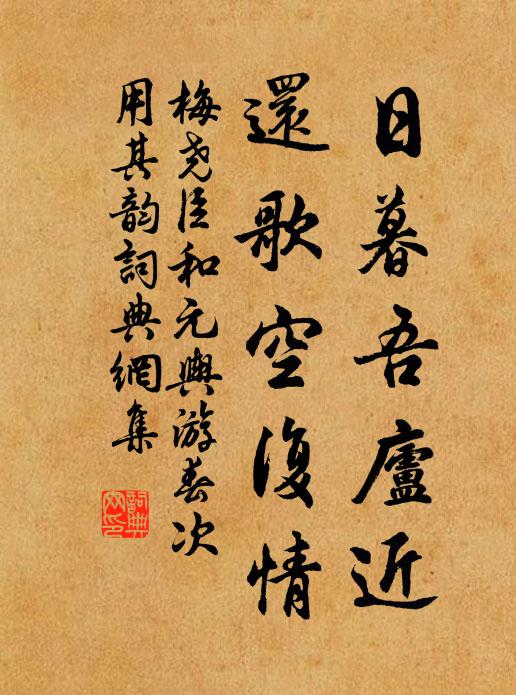 日暮吾廬近
還歌空復情
梅尧臣和元興游春次
用其韵詞典網集
詞典
网印